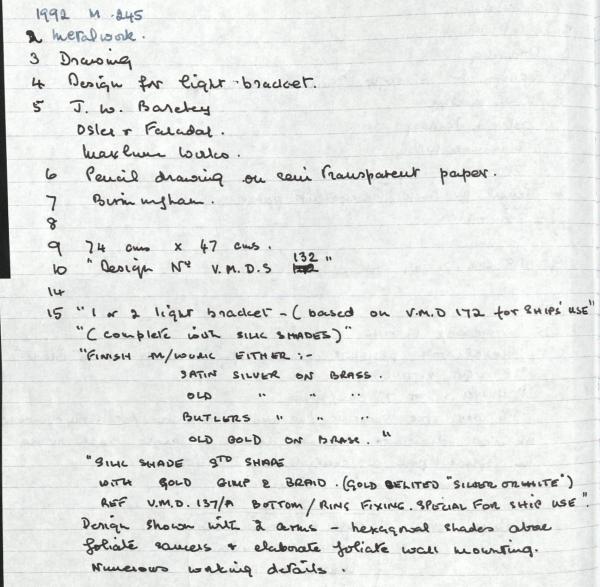 1992 M .245
2 Metalwork.
3 Drawing
4 Design for light bracket.
5 J. W. Barckey
Osler & Faradat.
Works.
6 Pencil drawing on semi transparent paper.
7 Birmingham.
8
9 74 cms x 47 cms.
10 "Design No V.M.D.S 132"
14
15 "1 or 2 light bracket - (based on V.M.D 172 for SHIPS' USE"
"(complete with SILK SHADES)"
"FINISH M/WORK EITHER :-
SATIN SILVER ON BRASS.
OLD " " "
BUTLERS " " "
OLD GOLD ON BRASS."
"SILK SHADE STD SHAPE
WITH GOLD GIMP & BRAID. (GOLD DELITED "SILVER OR WHITE")
REF V.M.D. 137/A BOTTOM / RING FIXING. SPECIAL FOR SHIP USE".
Design shown with 2 arms - hexagonal shades above
foliate saucers & elaborate foliate wall mounting.
Numerous working details.